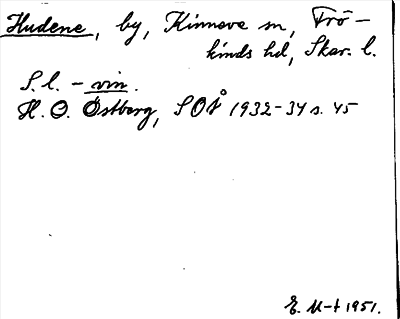 Hudene, by, Kinneve sn, Frö-
kinds hd, Skar. l.
S. l. - vin.
H. O. Östberg, SOÅ 1932-34 s. 45
E. M-t 1951.